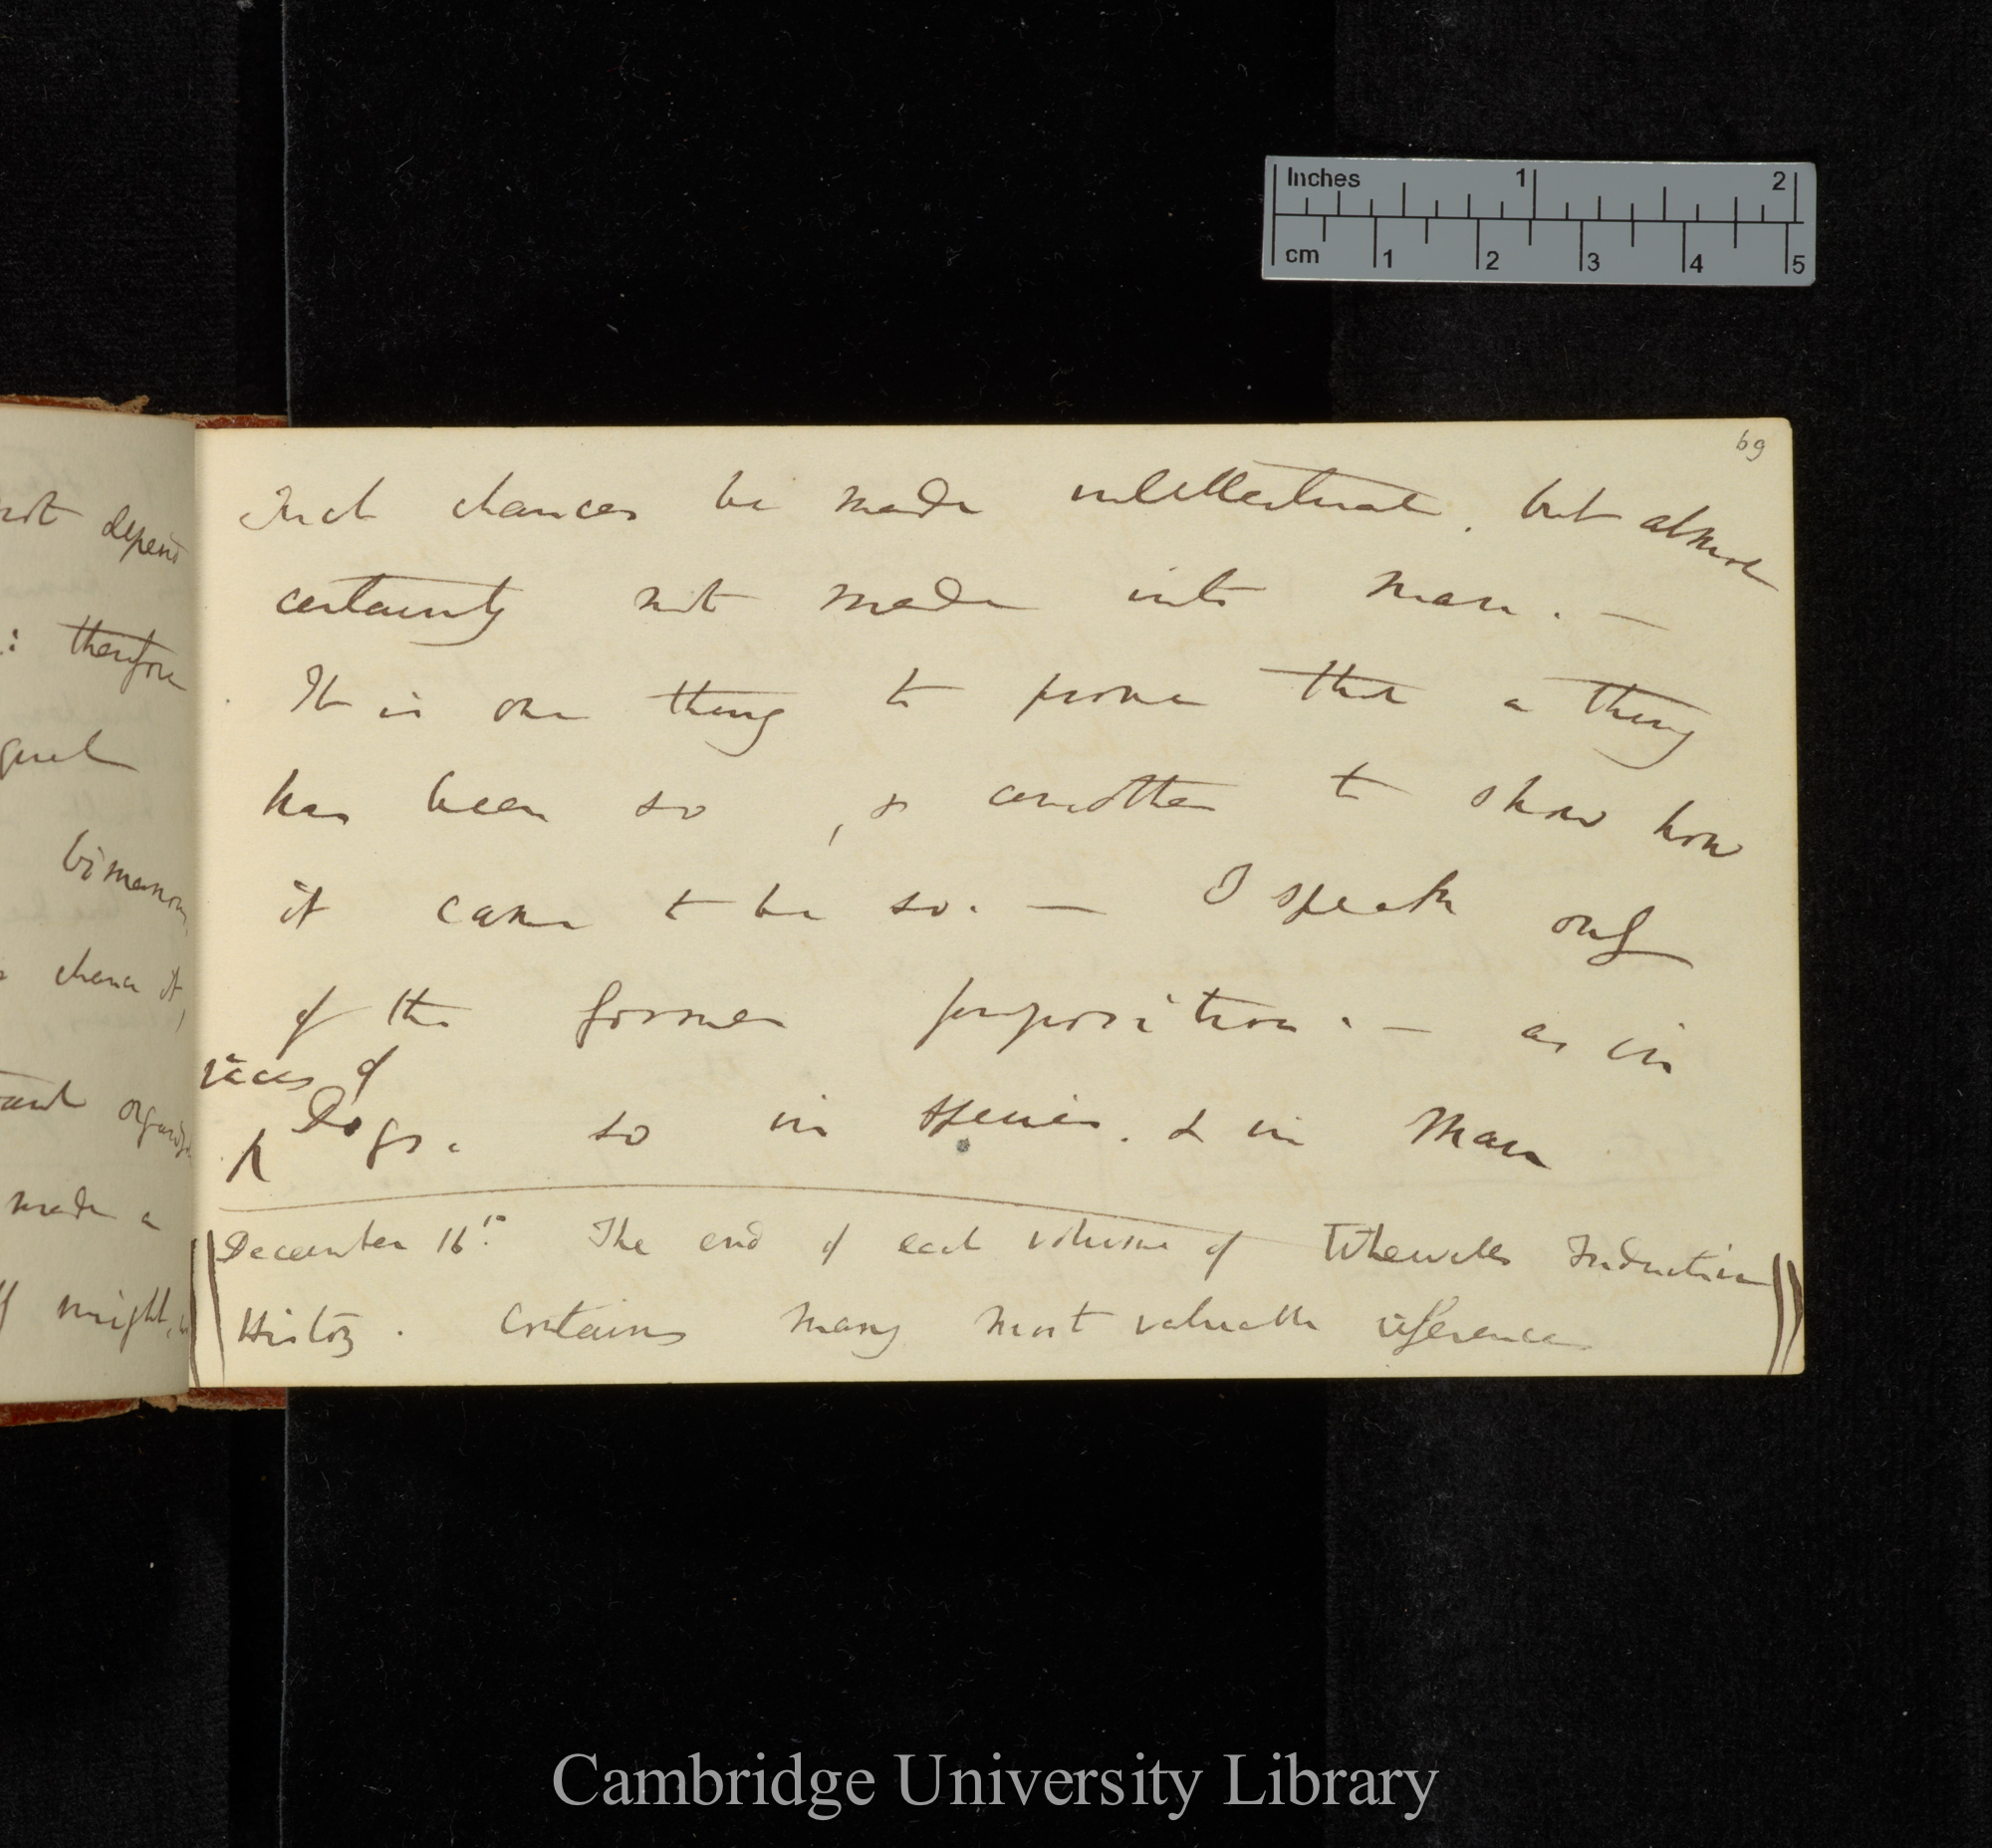 Inches 1 2
cm 1 2 3 4 5
69
such chances be made intellectual, but almost
certainly not made into man. —
It is one thing to prove that a thing
has been so, & another to show how
it came to be so. — I speak only
of the former proposition. — as in
races of
Dogs. so in species. & in Man
December 16th The end of each volume of Whewells Induction
History. contains many most valuable reference
not depend
therefore
bimanou
chance it,
made a
might,
Cambridge University Library